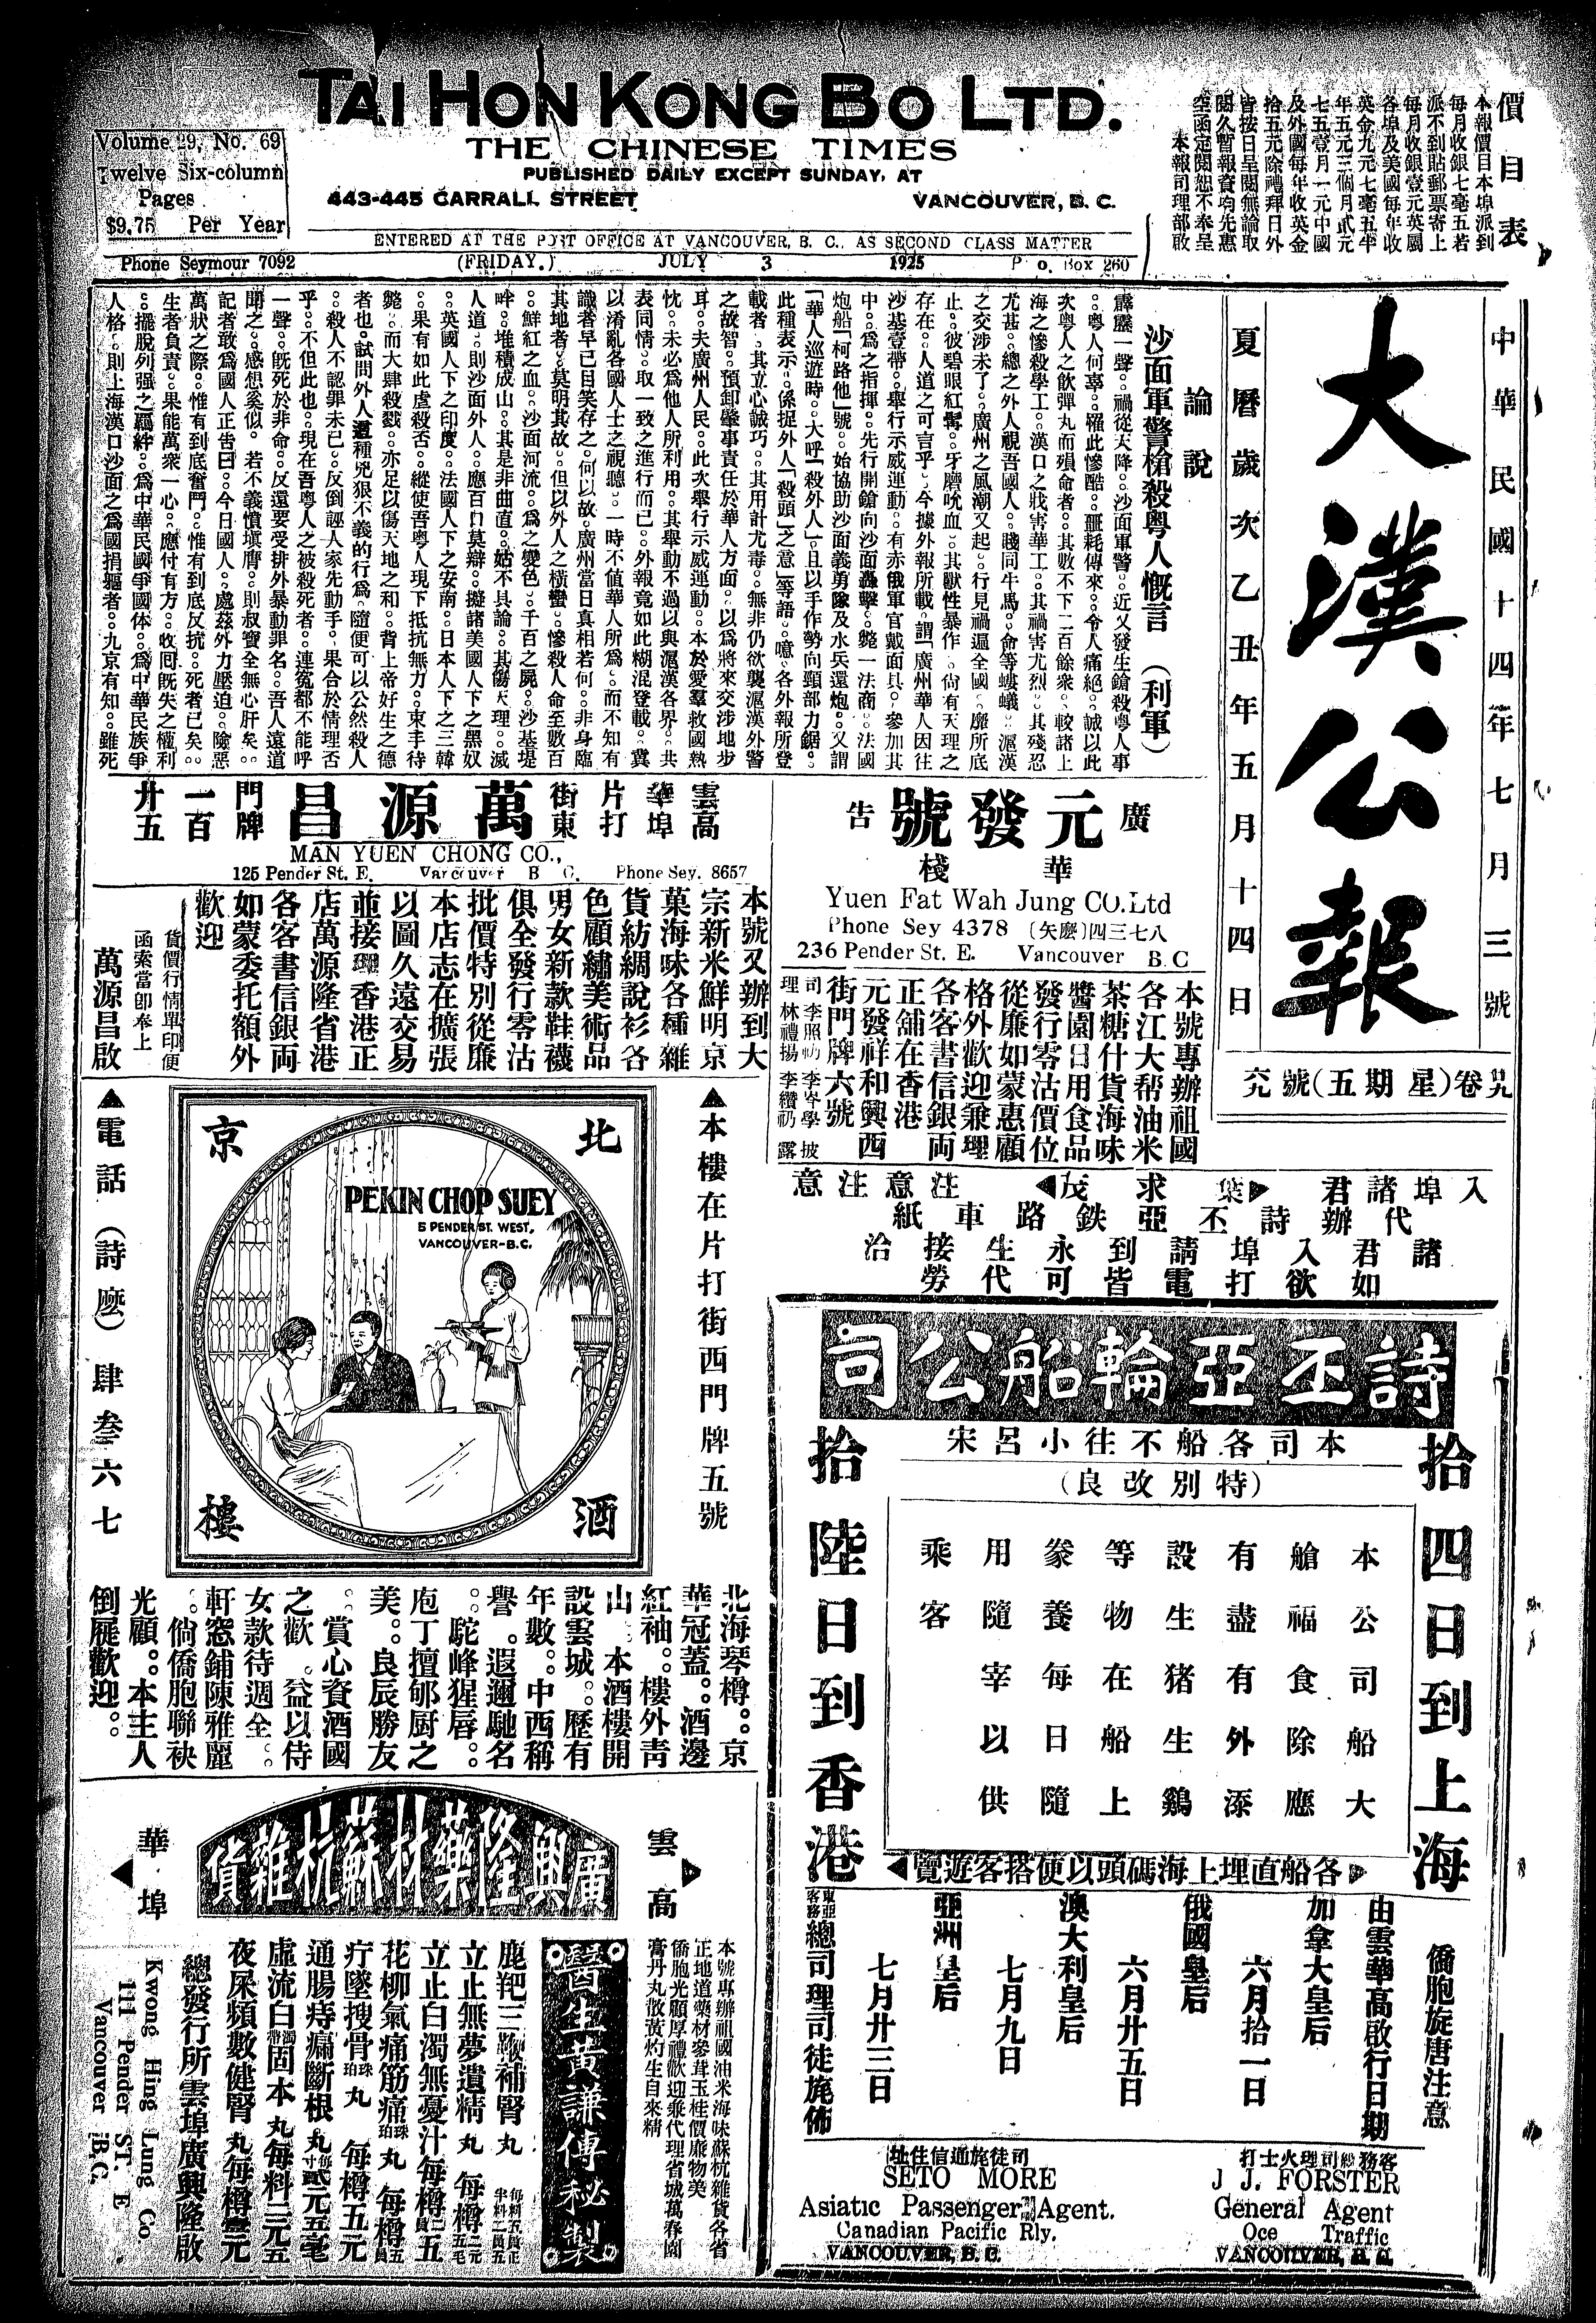 TAI HON KONG BO LTD.
THE CHINESE TIMES
PUBLISHED DAILY EXCEPT SUNDAY, AT
443-445 CARRALL STREET VANCOUVER, B. C.
Volume 29, No. 69
Twelve Six-column
Pages
$9.75 Per Year
ENTERED AT THE POST OFFICE AT VANCOUVER, B. C., AS SECOND CLASS MATTER
Phone Seymour 7092 (FRIDAY.) JULY 3 1925 P. O. Box 260
價目表
本報價目本埠派到
每月收銀七毫五若
派不到貼郵票寄上
每月收銀壹元英屬
各埠及美國每年收
英金九元七毫五半
年五元三個月貳元
七五壹月一元中國
及外國每年收英金
拾五元除禮拜日外
皆按日呈閱無論取
閱久暫報資均先惠
空函定閱恕不奉呈
本報司理部啟
中華民國十四年七月三號
大漢公報
夏曆歲次乙丑年五月十四日
廿九卷(星期五)號六九
論說
沙面軍警槍殺粵人慨言 (利軍)
霹靂一聲。禍從天降。沙面軍警。近又發生鎗殺粵人事
。粵人何辜。罹此慘酷。噩耗傳來。令人痛絕。誠以此
次粵人之飲彈丸而殞命者。其數不下二百餘衆。較諸上
海之慘殺學工。漢口之戕害華工。其禍害尤烈。其殘忍
尤甚。總之外人視吾國人。賤同牛馬。命等螻蟻。滬漢
之交涉未了。廣州之風潮又起。行見禍遍全國。靡所底
止。彼碧眼紅髯。牙磨吮血。其獸性暴作。尙有天理之
存在。人道之可言乎。今據外報所載。謂「廣州華人因往
沙基壹帶。舉行示威運動。有赤俄軍官戴面具。參加其
中。爲之指揮。先行開鎗向沙面轟擊。斃一法商。法國
炮船「柯路他」號。始協助沙面義勇隊及水兵還炮。又謂
「華人巡遊時。大呼「殺外人」。且以手作勢向頸部力鋸。
此種表示。係捉外人「殺頭」之意」等語。噫。各外報所登
載者。其立心誠巧。其用計尤毒。無非仍欲襲滬漢外警
之故智。預卸肇事責任於華人方面。以爲將來交涉地步
耳。夫廣州人民。此次舉行示威運動。本於愛羣救國熱
忱。未必爲他人所利用。其舉動不過以與滬漢各界。共
表同情。取一致之進行而已。外報竟如此糊混登載。冀
以淆亂各國人士之視聽。一時不值華人所爲。而不知有
識者早已目笑存之。何以故。廣州當日真相若何。非身臨
其地者。莫明其故。但以外人之橫蠻。慘殺人命至數百
。鮮紅之血。沙面河流。爲之變色。千百之屍。沙基堤
畔。堆積成山。其是非曲直。姑不具論。其傷天理。滅
人道。則沙面外人。應百口莫辯。擬諸美國人下之黑奴
。英國人下之印度。法國人下之安南。日本人下之三韓
。果有如此虐殺否。縱使吾粵人現下抵抗無力。束手待
斃。而大肆殺戮。亦足以傷天地之和。背上帝好生之德
者也。試問外人這種兇狠不義的行爲。隨便可以公然殺人
。殺人不認罪未已。反倒誣人家先動手。果合於情理否
乎。不但此也。現在吾粵人之被殺死者。連冤都不能呼
一聲。旣死於非命。反還要受排外暴動罪名。吾人遠道
聞之。感想奚似。若不義憤塡膺。則叔寶全無心肝矣。
記者敢爲國人正告曰。今日國人。處茲外力壓迫。險惡
萬狀之際。惟有到底奮鬥。惟有到底反抗。死者已矣。
生者負責。果能萬衆一心。應付有方。收回旣失之權利
。擺脫列强之羈絆。爲中華民國爭國体。爲中華民族爭
人格。則上海漢口沙面之爲國捐軀者。九京有知。雖死
廣元發號告
華棧
Yuen Fat Wah Jung CO.Ltd
Phone Sey 4378 (矢麽)四三七八
236 Pender St. E. Vancouver B C
本號專辦祖國
各江大帮油米
茶糖什貨海味
醬園日用食品
發行零沽價位
從廉如蒙惠顧
格外歡迎兼理
各客書信銀両
正舖在香港
元發祥和興西
街門牌六號
雲高華埠片打街東
萬源昌
門牌一百廿五
MAN YUEN CHONG CO.,
125 Pender St. E. Vancouver B C. Phone Sey. 8657
本號又辦到大
宗新米鮮明京
菓海味各種雜
貨紡綢說衫各
色顧繡美術品
男女新款鞋襪
俱全發行零沽
批價特別從廉
本店志在擴張
以圖久遠交易
並接理香港正
店萬源隆省港
各客書信銀両
如蒙委托額外
歡迎
貨價行情單印便
函索當卽奉上
萬源昌啟
入埠諸君 葉求茂 注意注意
代辦詩丕亞鉄路車紙
諸君入埠請到永生接洽
如欲打電皆可代勞
▲本樓在片打街西門牌五號
北京酒樓
PEKIN CHOP SUEY
5 PENDER ST. WEST,
VANCOUVER-B.C.
▲電話(詩麽)肆叁六七
北海琴樽。京
華冠蓋。酒邊
紅袖。樓外靑
山。本酒樓開
設雲城。歷有
年數。中西稱
譽。遐邇馳名
。駝峰猩唇。
庖丁擅郇厨之
美。良辰勝友
。賞心資酒國
之歡。益以侍
女款待週全。
軒窓鋪陳雅麗
。倘僑胞聯袂
光顧。本主人
倒屣歡迎。
詩丕亞輪船公司
本司各船不往小呂宋
(特別改良)
拾四日到上海
本公司船大
艙福食除應
有盡有外添
設生猪生鷄
等物在船上
豢養每日隨
用隨宰以供
乘客
拾陸日到香港
各船直埋上海碼頭以使搭客遊覽
僑胞旋唐注意
由雲華高啟行日期
加拿大皇后 六月拾一日
俄國皇后 六月廿五日
澳大利皇后 七月九日
亞洲皇后 七月廿三日
東亞客務總司理司徒旄佈
司徒旄通信住址
SETO MORE
Asiatic Passenger Agent.
Canadian Pacific Rly.
VANCOUVER, B. C.
客務總司理火士打
J J. FORSTER
General Agent
Oce Traffic
VANCOUVER, B. C.
雲高華埠
廣興隆藥材蘇杭雜貨
本號專辦祖國油米海味蘇杭雜貨各省
正地道藥材參茸玉桂價廉物美
僑胞光顧厚禮歡迎兼代理省城萬春園
膏丹丸散黃灼生自來精
醫生黄謙傳秘製
鹿羓三鞭補腎丸
立止無夢遺精丸 每樽二元五毛
立止白濁無憂汁每樽二員五
花柳氣痛筋痛珠珀丸 每樽五員
疔墜搜骨珠珀丸 每樽五元
通腸痔痛斷根丸 貳元五毫
虛流白濁帶固本丸每料三元五
夜尿頻數健腎丸每樽壹元
總發行所雲埠廣興隆啟
Kwong Hing Lung Co.
111 Pender ST. E
Vancouver B.C.